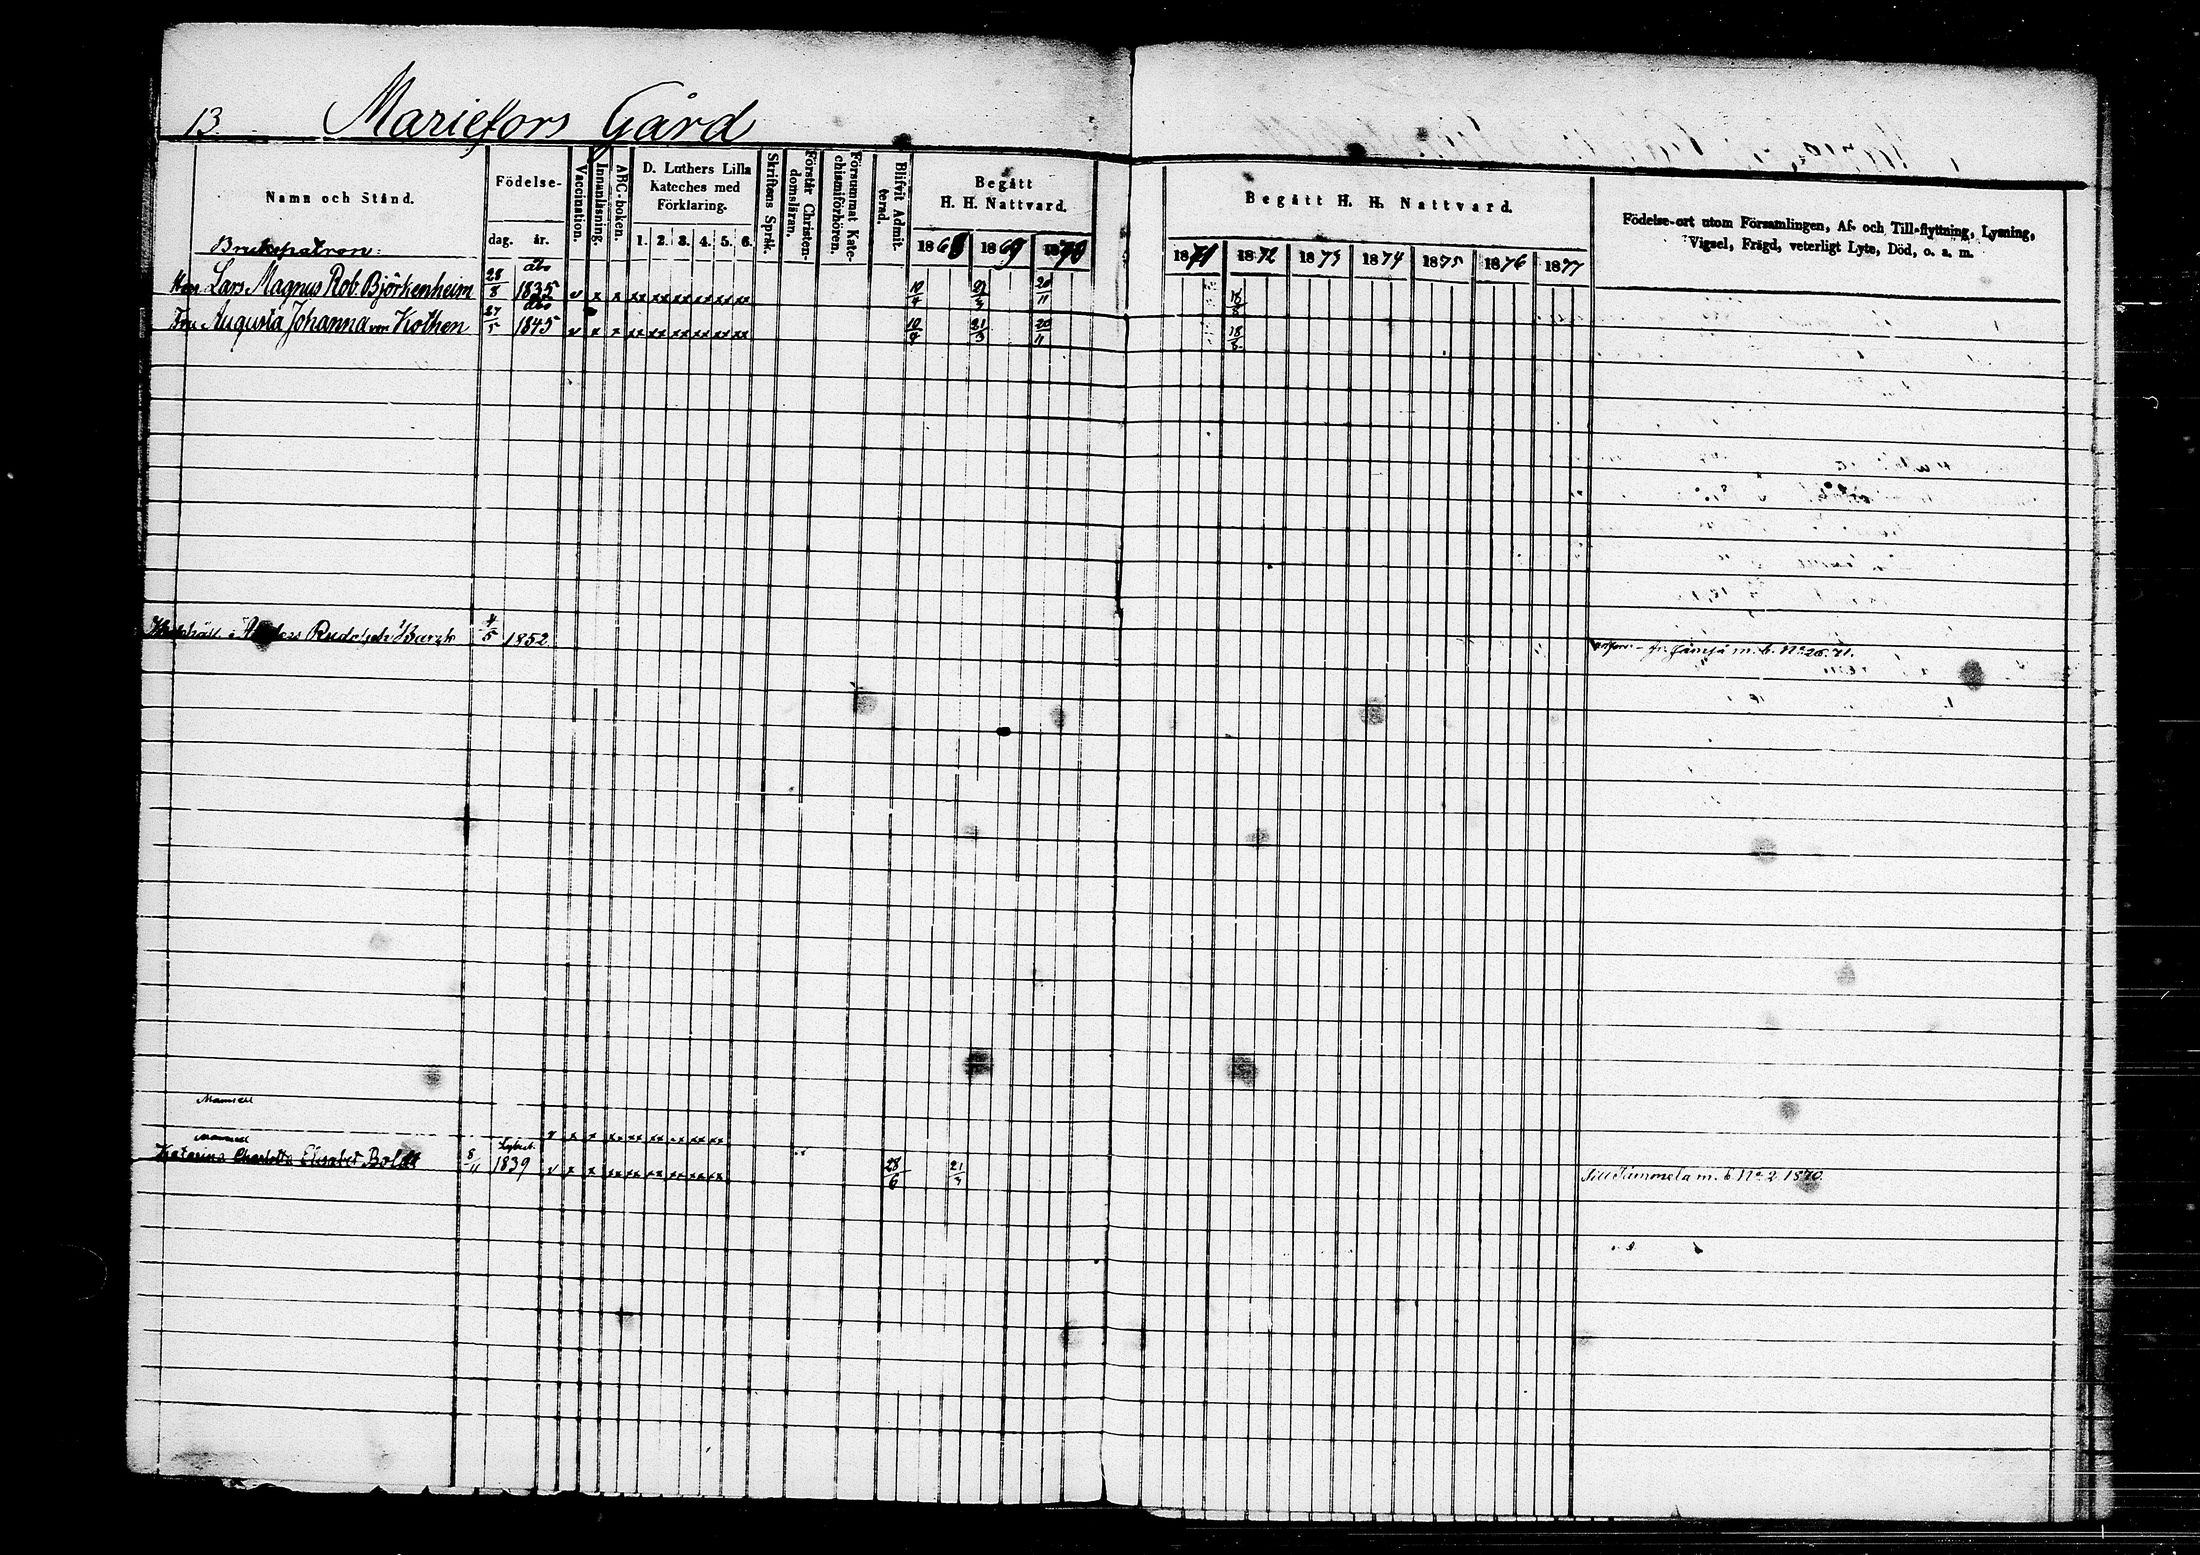 13. Mariefors Gård
Namn och Stånd.
Födelse-
dag. år.
Vaccination.
Innanläsning.
ABC-boken.
D. Luthers Lilla
Kateches med
Förklaring.
1. 2. 3. 4. 5. 6.
Skriftens Språk.
Förstår Christen-
domsläran.
Försummat Kate-
chismiförhören.
Blifvit Admit-
terad.
Begått
H. H. Nattvard.
1868 1869 1870
Begått H. H. Nattvard.
1871 1872 1873 1874 1875 1876 1877
Födelse-ort utom Församlingen, Af- och Till-flyttning, Lysning,
Vigsel, Frägd, veterligt Lyte, Död, o. a. m.
Brukspatron:
Åbo
Herr Lars Magnus Rob. Björkenheim 28/8 1835 v x x xx xx xx xx xx xx 10/4 21/3 20/11 18/8
Åbo
Fru Augusta Johanna von Kothen 27/5 1845 v x x xx xx xx xx xx xx 10/4 21/3 20/11 18/8
Rudolph 4/5 1852. fr. Jämsä m. b. No 26. 71.
Mamsell
v x x xx xx xx xx xx
Mamsell
Katarina Charlotta Elisabet Boldt 8/11 1839 v x x xx xx xx xx xx 28/6 21/3 Till Tammela m. b. No 2 1870.